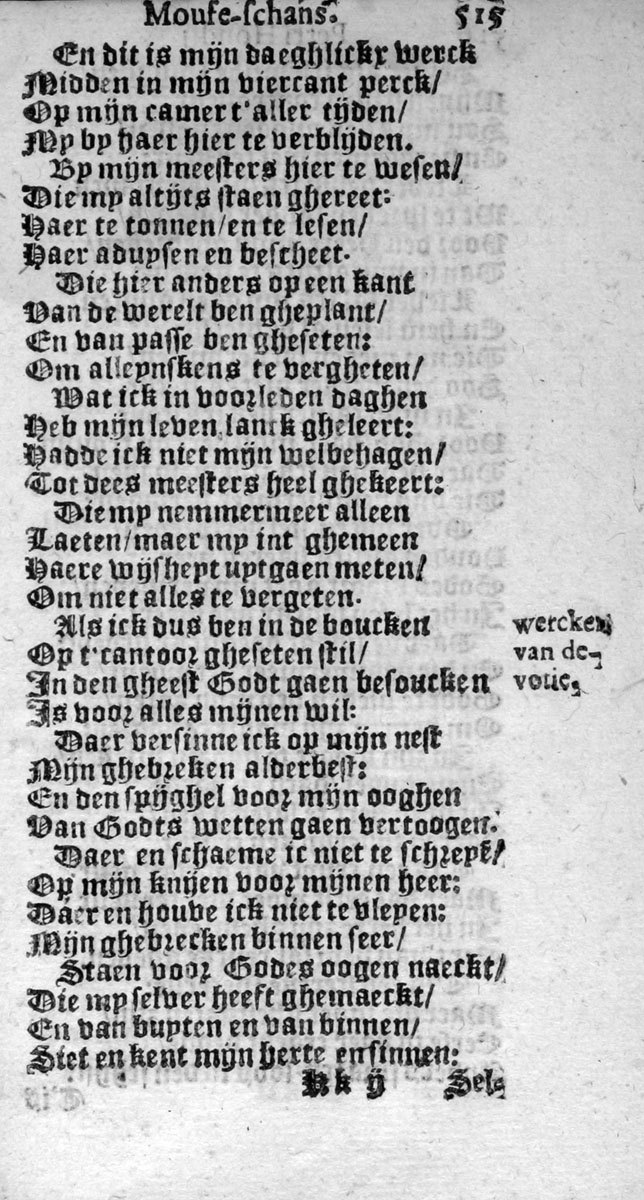 Mouse-schans. 515
En dit is mijn daeghlickx werck
Midden in mijn viercant perck/
Op mijn camer t'aller tijden/
My by haer hier te verblijden.
By mijn meesters hier te wesen/
Die my altijts staen ghereet:
Haer te tonnen/en te lesen/
Haer aduysen en bescheet.
Die hier anders op een kant
Van de werelt ben gheplant/
En van passe ben gheseten:
Om alleynskens te vergheten/
Wat ick in voorleden daghen
Heb mijn leven lanck gheleert:
Hadde ick niet mijn welbehagen/
Tot dees meesters heel ghekeert:
Die my nemmermeer alleen
Laeten/maer my int ghemeen
Haere wijsheyt uytgaen meten/
Om niet alles te vergeten.
Als ick dus ben in de boucken
wercken
Op t'cantoor gheseten stil/
van de-
In den gheest Godt gaen besoucken
votie,
Is voor alles mijnen wil:
Daer versinne ick op mijn nest
Mijn ghebreken alderbest:
En den spijghel voor mijn ooghen
Van Godts wetten gaen vertoogen.
Daer en schaeme ic niet te schreyē/
Op mijn knijen voor mijnen heer:
Daer en houve ick niet te vleyen:
Mijn ghebrecken binnen seer/
Staen voor Godes oogen naeckt/
Die my selver heeft ghemaeckt/
En van buyten en van binnen/
Siet en kent mijn herte ensinnen:
Kk ij Sel-